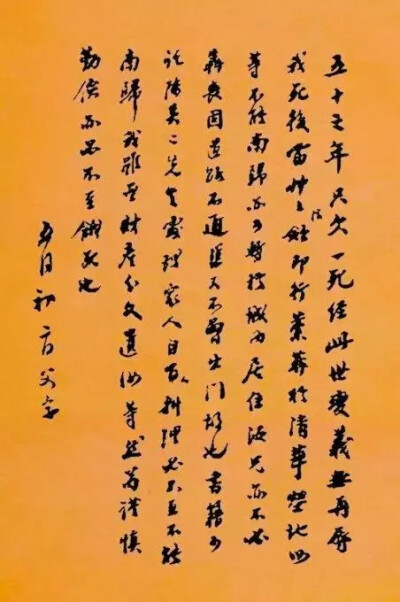 五十之年只欠一死經此世變義無再辱
我死後當草草棺殮即行藁葬於清華塋地汝
等不能南歸亦可暫於城内居住汝兄亦不必
奔喪因道路不通渠又不曾出門故也書籍可
託陳吳二先生處理家人自有人料理必不至不能
南歸我雖無財產分文遺汝等然苟謹慎
勤儉亦必不至餓死也
五月初二日父字